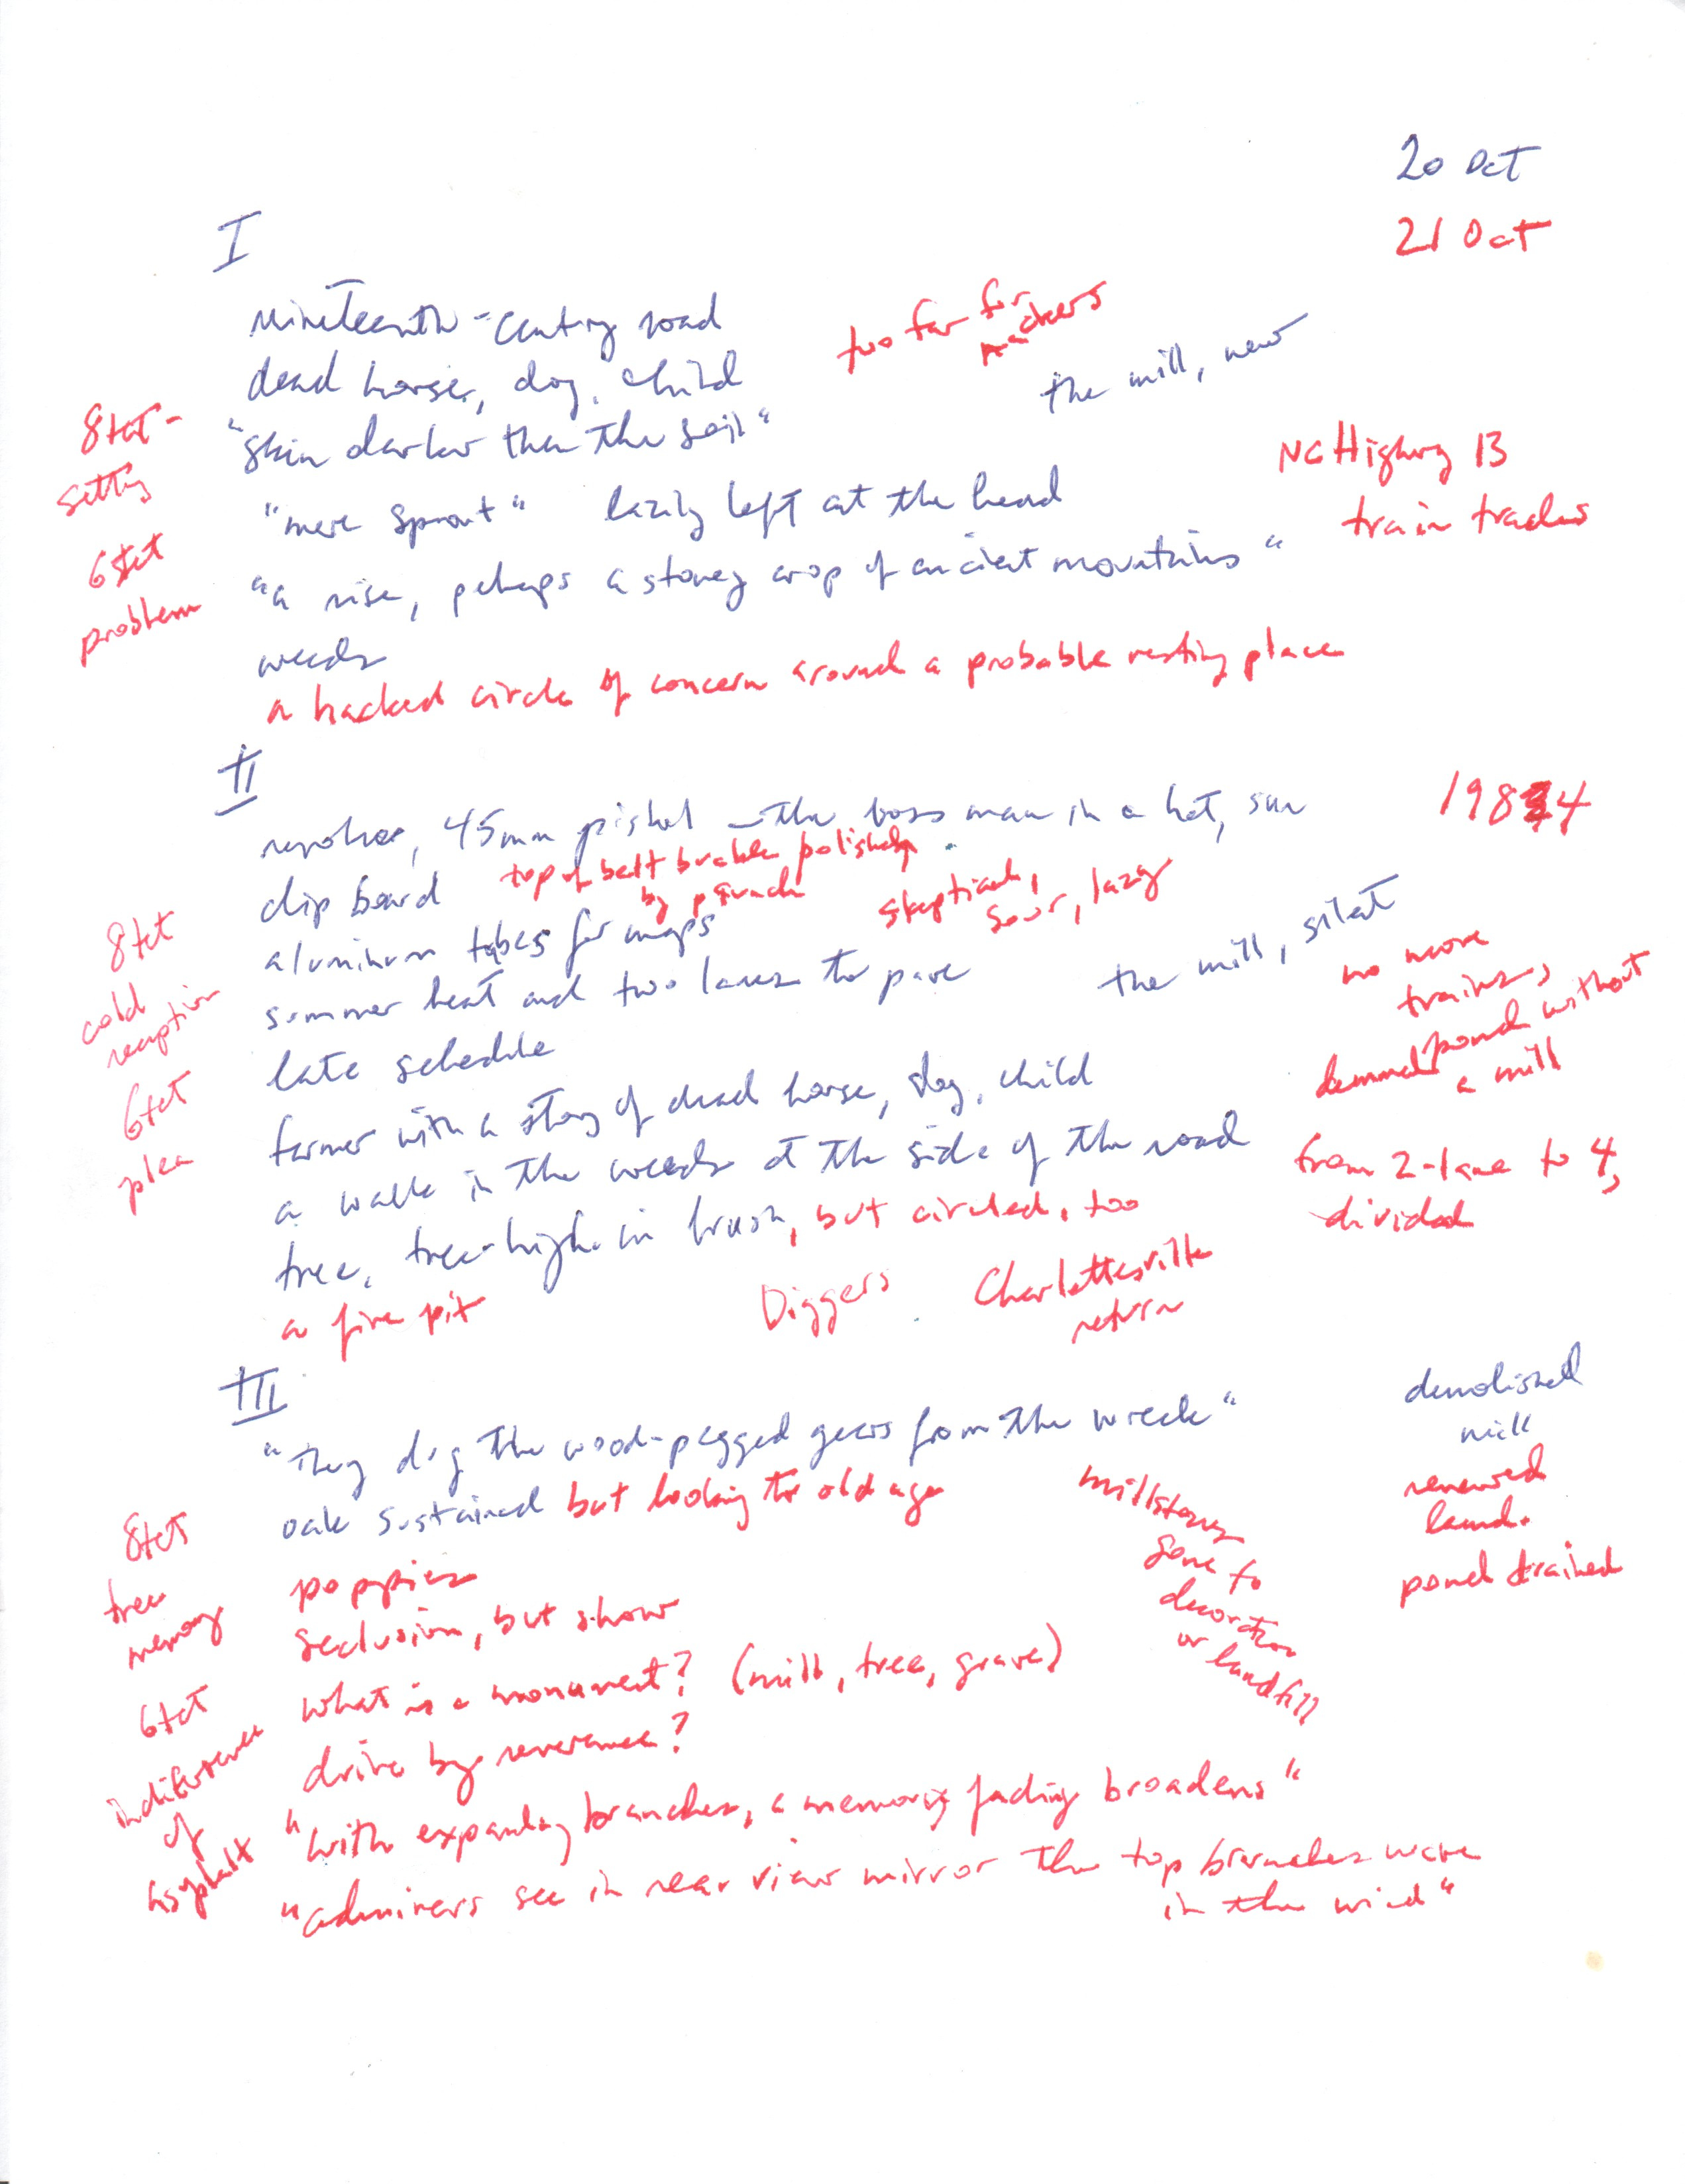 20 Oct
21 Oct
I
Nineteenth-century road
dead horse, dog, child
"skin darker than the soil"
"mere sprout" lazily left at the head
"a rise, perhaps a stoney crop of ancient mountains"
weeds
a hacked circle of concern around a probable resting place
too far for
the mill, new
NC Highway 13
train tracks
8tet-
setting
6tet
problem
II
revolver, 45mm pistol - the boss man in a hat, sun
top of belt buckle polished
by paunch
clip board
skeptical,
sour, lazy
aluminum tubes for maps
summer heat and two lanes to pave
late schedule
farmer with a story of dead horse, dog, child
a walk in the weeds at the side of the road
tree, tree-high in brush, but circled, too
a fire pit
Diggers
Charlottesville
return
1984
the mill, silent
no more
trains,
dammed pond without
a mill
from 2-lane to 4,
divided
8tet
cold
reception
6tet
plea
III
"They dig the wood-pegged gears from the wreck"
oak sustained but looking to old age
poppies
seclusion, but show
what is a monument? (mill, tree, grave)
drive by reverence?
"with expanding branches, a memory fading broadens"
"admirers see in rear view mirror the top branches wave
in the wind"
millstones
gone to
decoration
or landfill
demolished
mill
renewed
land.
pond drained
8tet
tree
memory
6tet
indifference
of
asphalt